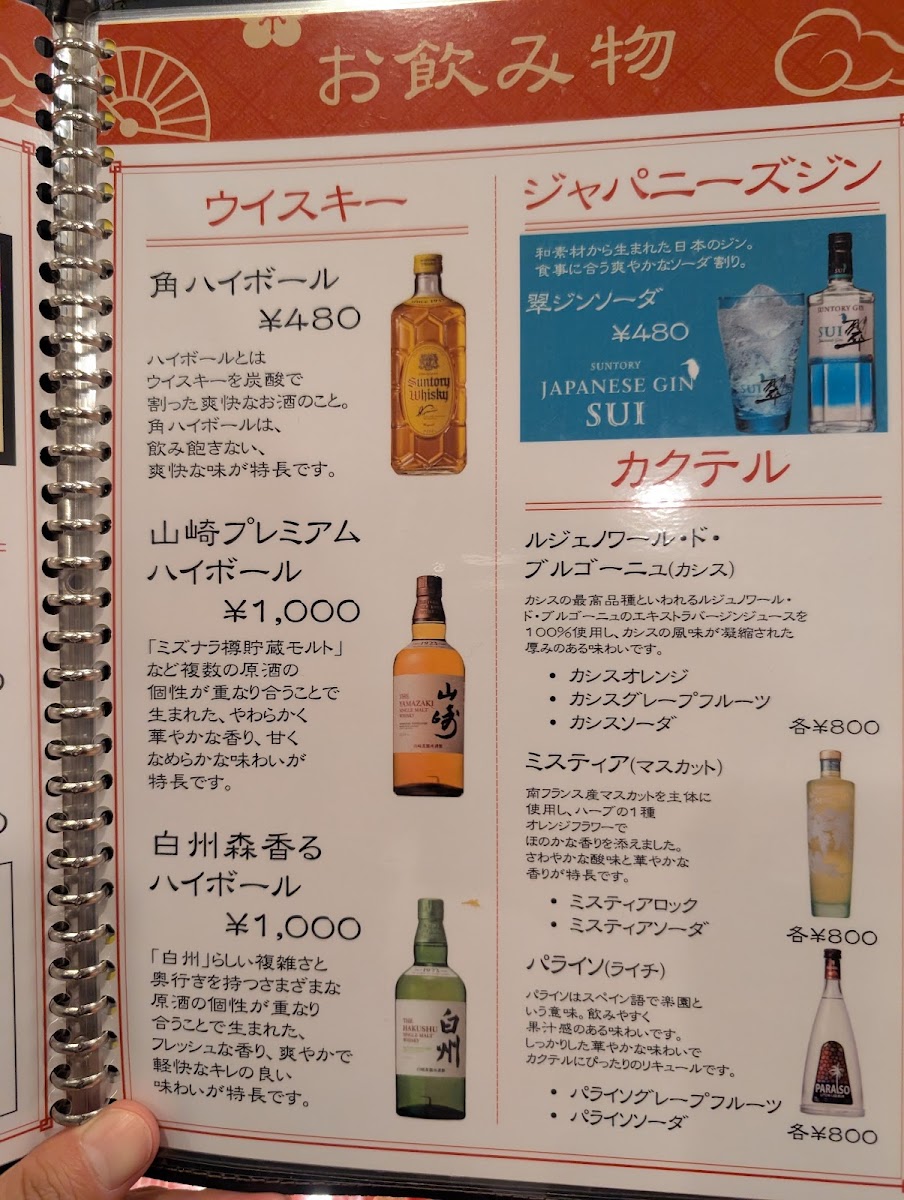 お飲み物
ウイスキー
角ハイボール
¥480
ハイボールとは
ウイスキーを炭酸で
割った爽快なお酒のこと。
角ハイボールは、
飲み飽きない、
爽快な味が特長です。
Suntory
Whisky
山崎プレミアム
ハイボール
¥1,000
「ミズナラ樽貯蔵モルト」
など複数の原酒の
個性が重なり合うことで
生まれた、やわらかく
華やかな香り、甘く
なめらかな味わいが
特長です。
THE
YAMAZAKI
SINGLE MALT
WHISKY
山崎
白州森香る
ハイボール
¥1,000
「白州」らしい複雑さと
奥行きを持つさまざまな
原酒の個性が重なり
合うことで生まれた、
フレッシュな香り、爽やかで
軽快なキレの良い
味わいが特長です。
THE
HAKUSHU
SINGLE MALT
WHISKY
白州
ジャパニーズジン
和素材から生まれた日本のジン。
食事に合う爽やかなソーダ割り。
翠ジンソーダ
¥480
SUNTORY
JAPANESE GIN
SUI
SUI 翠
SUNTORY GIN
SUI 翠
カクテル
ルジェノワール・ド・
ブルゴーニュ(カシス)
カシスの最高品種といわれるルジュノワール・
ド・ブルゴーニュのエキストラバージンジュースを
100%使用し、カシスの風味が凝縮された
厚みのある味わいです。
• カシスオレンジ
• カシスグレープフルーツ
• カシスソーダ
各¥800
ミスティア(マスカット)
南フランス産マスカットを主体に
使用し、ハーブの1種
オレンジフラワーで
ほのかな香りを添えました。
さわやかな酸味と華やかな
香りが特長です。
• ミスティアロック
• ミスティアソーダ
各¥800
パライソ(ライチ)
パライソはスペイン語で楽園と
いう意味。飲みやすく
果汁感のある味わいです。
しっかりした華やかな味わいで
カクテルにぴったりのリキュールです。
• パライソグレープフルーツ
• パライソソーダ
PARAISO
各¥800